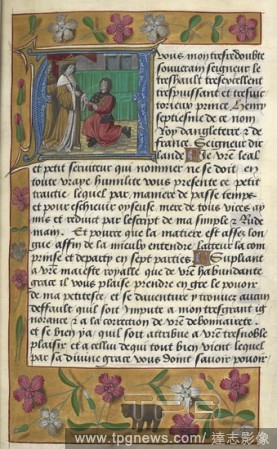 vous mon tresredoubte
souverain seigneur le
treshault tresexcellent
trespuissant et tresvic
torieux prince Henry
septiesme de ce nom
Roy dangleterre & de
france Seigneur dir
lande Je vre leal
et petit serviteur qui nommer ne se doit en
toute vraye humilite vous presente ce petit
traictie lequel par maniere de passe temps
et pour eschever oyseuse mere de tous vices ay
mis et reduit par lescript de ma simple & Rude
main Et pource que la matiere est asses lon
gue affin de la mieulx entendre lacteur la com
prinse et departy en sept parties Supliant
a vre maieste royalle que de vre habundante
grace il vous plaise prendre en gre le povoir
de ma petitesse et se daventure y trouvez aucun
deffault quil soit impute a mon tresgrant ig
norance & a la correction de vre debonnairete
et se bien ya quil soit attribue a vre tresnoble
plaisir et a cellui de qui tout bien vient lequel
par sa divine grace vous doint savoir povoir
www.tpgnews.com/達志影像